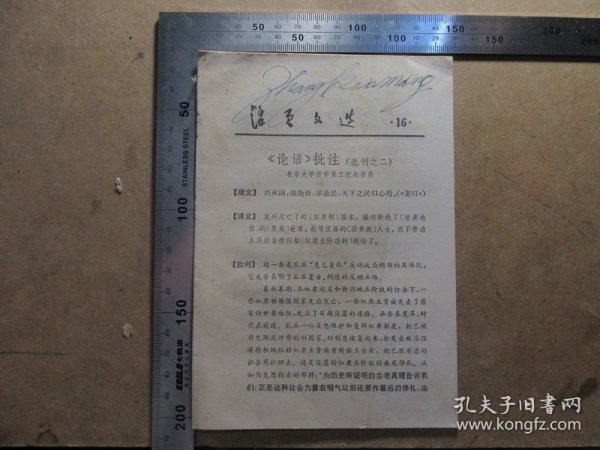 Zhang
活页文选
·16·
《论语》批注(选刊之二)
北京大学哲学系工农兵学员
【原文】 兴灭国,继绝世,举逸民,天下之民归心焉。(《尧曰》)
【译文】 复兴灭亡了的(奴隶制)国家,接续断绝了(世袭地
位)的(贵族)世家,起用没落的(旧贵族)人士,天下劳动
人民就自然归服(奴隶主阶级的)统治了。
【批判】 这一条是孔丘“克己复礼”反动政治纲领的具体化,
它充分表明了孔丘复古、倒退的反动立场。
春秋末期,在奴隶起义和新兴地主阶级的打击下,一
些奴隶制诸侯国家先后灭亡,一些奴隶主贵族失去了原
有的世袭地位,走上了日趋没落的道路。社会在变革,时
代在前进。孔丘一心妄想维护和复辟奴隶制度,把已被
历史潮流冲垮的旧国家、旧制度恢复起来,把失去政治经
济特权地位的奴隶主贵族重新抬上台来,把已经前进的
社会再拉回去。这是没落的奴隶主阶级的垂死挣扎。正
如马克思指出的那样:“为历史所证明的古老真理告诉我
们:正是这种社会力量在咽气以前还要作最后的挣扎,由
50
100
150
200
STAINLESS STEEL
50
100
150
200
孔夫子旧书网
www.kongfz.com